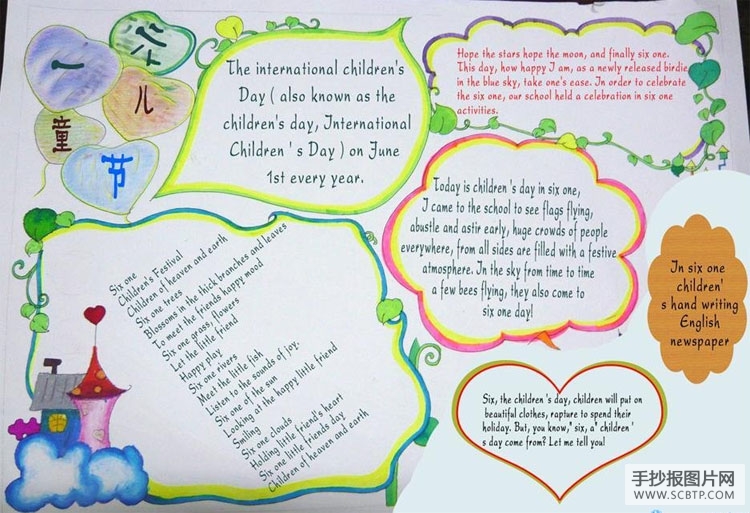 六
一
儿
童
节
The international children's
Day ( also known as the
children's day, International
Children ' s Day ) on June
1st every year.
Hope the stars hope the moon, and finally six one.
This day, how happy I am, as a newly released birdie
in the blue sky, take one's ease. In order to celebrate
the six one, our school held a celebration in six one
activities.
Today is children 's day in six one,
I came to the school to see flags flying,
abustle and astir early, huge crowds of people
everywhere, from all sides are filled with a festive
atmosphere. In the sky from time to time
a few bees flying, they also come to
six one day!
In six one
children'
s hand writing
English
newspaper
Six one
Children's Festival
Children of heaven and earth
Six one trees
Blossoms in the thick branches and leaves
To meet the friends happy mood
Six one grass, flowers
Let the little friend
Happy play
Six one rivers
Meet the little fish
Listen to the sounds of joy.
Six one of the sun
Looking at the happy little friend
Smiling
Six one clouds
Holding little friend's heart
Six one little friends day
Children of heaven and earth
Six, the children 's day, children will put on
beautiful clothes, rapture to spend their
holiday. But, you know,' six, a' children '
s day come from? Let me tell you!
手抄报图片网
WWW.SCBTP.COM